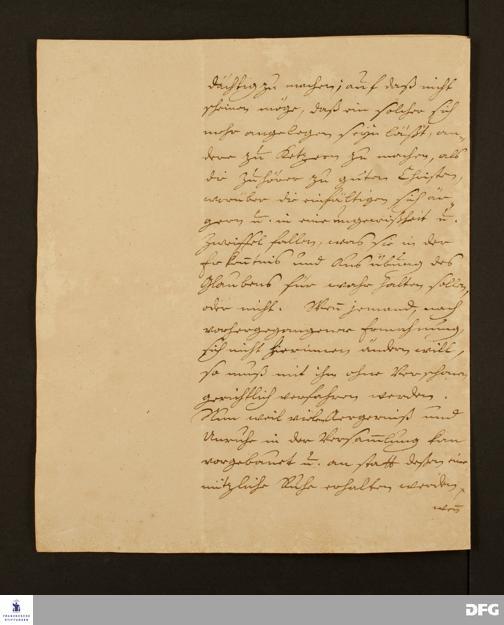 dächtig zu machen; auf daß nicht
scheinen möge, daß ein solcher sich
mehr angelegen seyn läßt, an-
dere zu Ketzern zu machen, als
die Zuhörer zu guten Christen,
worüber die einfältigen sich är-
gern u. in eine ungewißheit u.
Zweiffel fallen, was sie in der
Erkäntnis und Ausübung des
Glaubens für wahr halten sollen
oder nicht. Wenn jemand, nach
vorhergegangener Ermahnung,
sich nicht hierinnen ändern will,
so muß mit ihm ohne Verschonen
gerichtlich verfahren werden.
Nun weil viele Aergerniß und
Unruhe in der Versam̅lung kan
vorgebauet u. an statt dessen eine
nützliche Ruhe erhalten werden,
wen̅
FRANCKESCHE
STIFTUNGEN
DFG